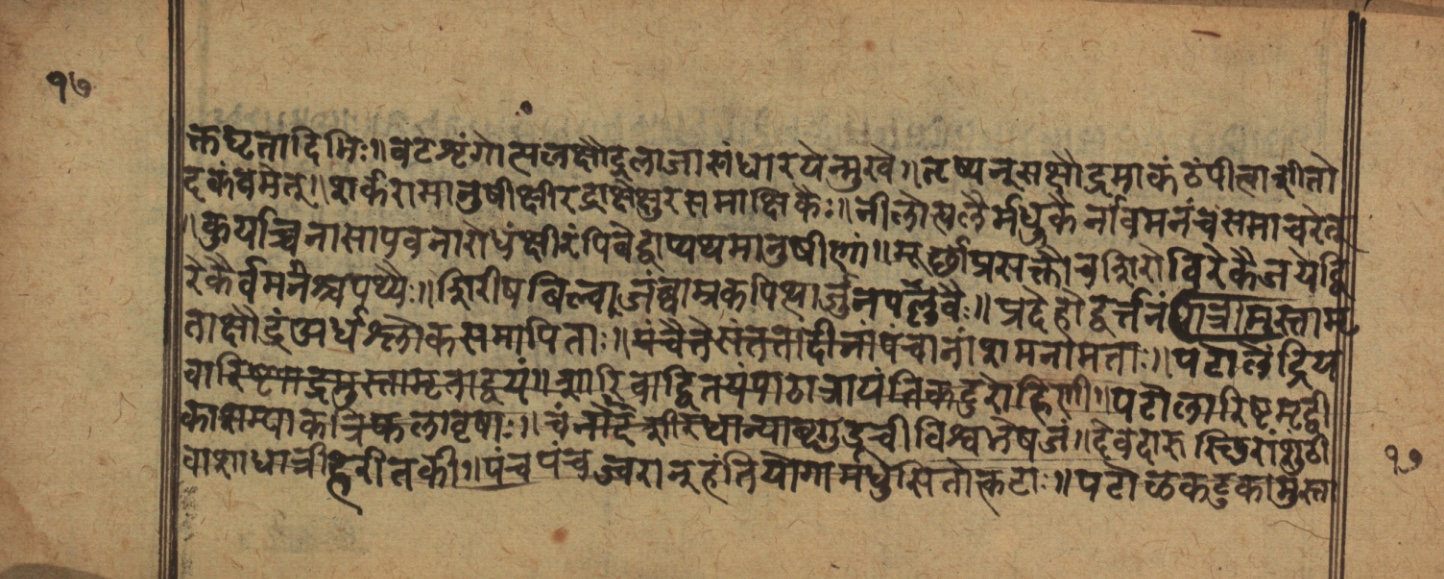 १७
क्तघृतादिभिः॥ वटशृंगोत्पलक्षौद्रलाजासंधारयेन्मुखे॥ तृष्यनुसक्षौद्रमाकंठंपीत्वाशीतो
दकंवमेत्॥ शर्करामानुषीक्षीरद्राक्षेक्षुरससमाक्षिकैः॥ नीलोत्पलैर्मधुकैर्नावमनंचसमाचरेत्
॥कुर्याच्चनासापवनारोधंक्षीरंपिबेद्वाप्यथमानुषीणां॥ मूर्छाप्रसक्तौचशिरोविरेकैजयेद्वि
रेकैर्वमनैश्चपथ्यैः॥ शिरीषबिल्वाजंब्वाम्रकपित्थार्जुनपल्लवैः॥ प्रदेहोद्वर्त्तनं मुस्ताम्र
ताक्षौद्रंअर्धश्लोकसमापिताः॥ पंचैतेसंततादीनांपंचानांशमनामताः॥ पटोलेंद्रिय
वारिष्टभद्रमुस्तामृताद्वयं॥ शारिवाद्वितयंपाठात्रायंतिकटुरोहिणी॥ पटोलारिष्टमृद्वी
काशम्पाकत्रिफलावृषाः॥ चंनोदशीरधान्याब्दगुडूचीविश्वभेषजं॥ देवदारुस्थिराशुंठी
वाशाधात्रीहरीतकी॥ पंचपंचज्वरान्हंतियोगामधुसितोत्कटाः॥ पटोलकटुकामुस्ता
१७